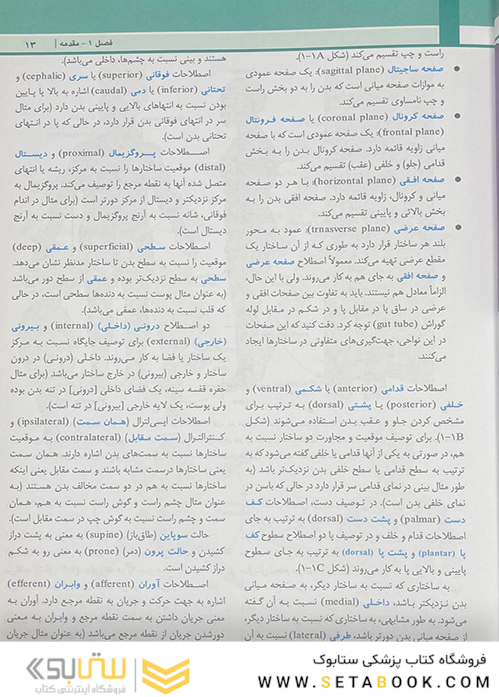 فصل ۱ - مقدمه | ۱۳
راست و چپ تقسیم می‌کند (شکل ۱A-۱).
• صفحه ساجیتال (sagittal plane): یک صفحه عمودی
به موازات صفحه میانی است که بدن را به دو بخش راست
و چپ نامساوی تقسیم می‌کند.
• صفحه کرونال (coronal plane) یا صفحه فرونتال
(frontal plane): یک صفحه عمودی است که با صفحه
میانی زاویه قائمه دارد. صفحه کرونال بدن را به بخش
قدامی (جلو) و خلفی (عقب) تقسیم می‌کند.
• صفحه افقی (horizontal plane): با هر دو صفحه
میانی و کرونال، زاویه قائمه دارد. صفحه افقی بدن را به
بخش بالائی و پایینی تقسیم می‌کند.
• صفحه عرضی (trnasverse plane): عمود به محور
بلند هر ساختار قرار دارد به طوری که از آن ساختار یک
مقطع عرضی تهیه می‌کند. معمولاً اصطلاح صفحه عرضی
و صفحه افقی به جای هم به کار می‌روند. ولی با این حال،
الزاماً معادل هم نیستند. باید به تفاوت بین صفحات افقی و
عرضی در ساق پا در مقابل پا و در شکم در مقابل لوله
گوراش (gut tube) توجه کرد. دقت کنید که این صفحات
در این نواحی، جهت‌گیری‌های متفاوتی در ساختارها ایجاد
می‌کنند.
اصطلاحات قدامی (anterior) یا شکمی (ventral) و
خلفی (posterior) یا پشتی (dorsal) به ترتیب برای
مشخص کردن جلو و عقب بدن استفاده می‌شوند (شکل
۱B-۱). برای توصیف موقعیت و مجاورت دو ساختار نسبت به
هم، در صورتی به یکی از آنها قدامی یا خلفی گفته می‌شود که به
ترتیب به سطح قدامی یا سطح خلفی بدن نزدیک‌تر باشد (به
طور مثال بینی در نمای قدامی سر قرار دارد در حالی که باسن در
نمای خلفی بدن است). در توصیف دست، اصطلاحات کف
دست (palmar) و پشت دست (dorsal) به ترتیب به جای
اصطلاحات قدام و خلف و در توصیف پا دو اصطلاح سطوح کف
پا (plantar) و پشت پا (dorsal) به ترتیب به جای سطوح
پایینی و بالایی پا به کار می‌روند (شکل ۱C-۱).
به ساختاری که نسبت به ساختار دیگر، به صفحه میانی
بدن نزدیک‌تر باشد، داخلی (medial) نسبت به آن گفته
می‌شود. به طور مشابهی، به ساختاری که نسبت به ساختار دیگر،
از صفحه میانی بدن دورتر باشد، طرفی (lateral) نسبت به آن
هستند و بینی نسبت به چشم‌ها، داخلی می‌باشد).
اصطلاحات فوقانی (superior) یا سری (cephalic) و
تحتانی (inferior) یا دمی (caudal) اشاره به بالا یا پایین
بودن نسبت به انتهاهای بالایی و پایینی بدن دارد (برای مثال
سر در انتهای فوقانی بدن قرار دارد، در حالی که پا در انتهای
تحتانی بدن است).
اصطلاحات پروگزیمال (proximal) و دیستال
(distal) موقعیت ساختارها را نسبت به مرکز، ریشه یا انتهای
متصل شده آنها به نقطه مرجع را توصیف می‌کند. پروگزیمال به
مرکز نزدیکتر و دیستال از مرکز دورتر است (برای مثال در اندام
فوقانی، شانه نسبت به آرنج پروگزیمال و دست نسبت به آرنج
دیستال است).
اصطلاحات سطحی (superficial) و عمقی (deep)
موقعیت را نسبت به سطح بدن تا ساختار مدنظر نشان می‌دهد.
سطحی به سطح نزدیک‌تر بوده و عمقی از سطح دور می‌باشد
(به عنوان مثال پوست نسبت به دنده‌ها سطحی است، در حالی
که قلب نسبت به دنده‌ها، عمقی می‌باشد).
دو اصطلاح درونی (داخلی) (internal) و بیرونی
(خارجی) (external) برای توصیف جایگاه نسبت به مرکز
یک ساختار یا فضا به کار می‌روند. داخلی (درونی) در درون
ساختار و خارجی (بیرونی) در خارج ساختار می‌باشد (برای مثال
حفره قفسه سینه، یک فضای داخلی [درونی] در تنه بدن بوده
ولی پوست، یک لایه خارجی [بیرونی] در تنه است).
اصطلاحات اپسی‌لترال (همان سمت) (ipsilateral) و
کنترالترال (سمت مقابل) (contralateral) به موقعیت
ساختارها نسبت به سمت‌های بدن اشاره دارند. همان سمت
یعنی ساختارها درسمت مشابه باشند و سمت مقابل یعنی اینکه
ساختارها نسبت به هم در دو سمت مخالف بدن هستند (به
عنوان مثال چشم راست و گوش راست نسبت به هم، همان
سمت و چشم راست نسبت به گوش چپ در سمت مقابل است).
حالت سوپاین (طاق‌باز) (supine) به معنی به پشت دراز
کشیدن و حالت پرون (دمر) (prone) به معنی رو به شکم
دراز کشیدن است.
اصطلاحات آوران (afferent) و وابران (efferent)
اشاره به جهت حرکت و جریان به نقطه مرجع دارد. آوران به
معنی جریان داشتن به سمت نقطه مرجع و وابران به معنی
دورشدن جریان از نقطه مرجع می‌باشد (به عنوان مثال جریان
فروشگاه کتاب پزشکی ستابوک
WWW.SETABOOK.COM
ستابوک
فروشگاه اینترنتی کتاب